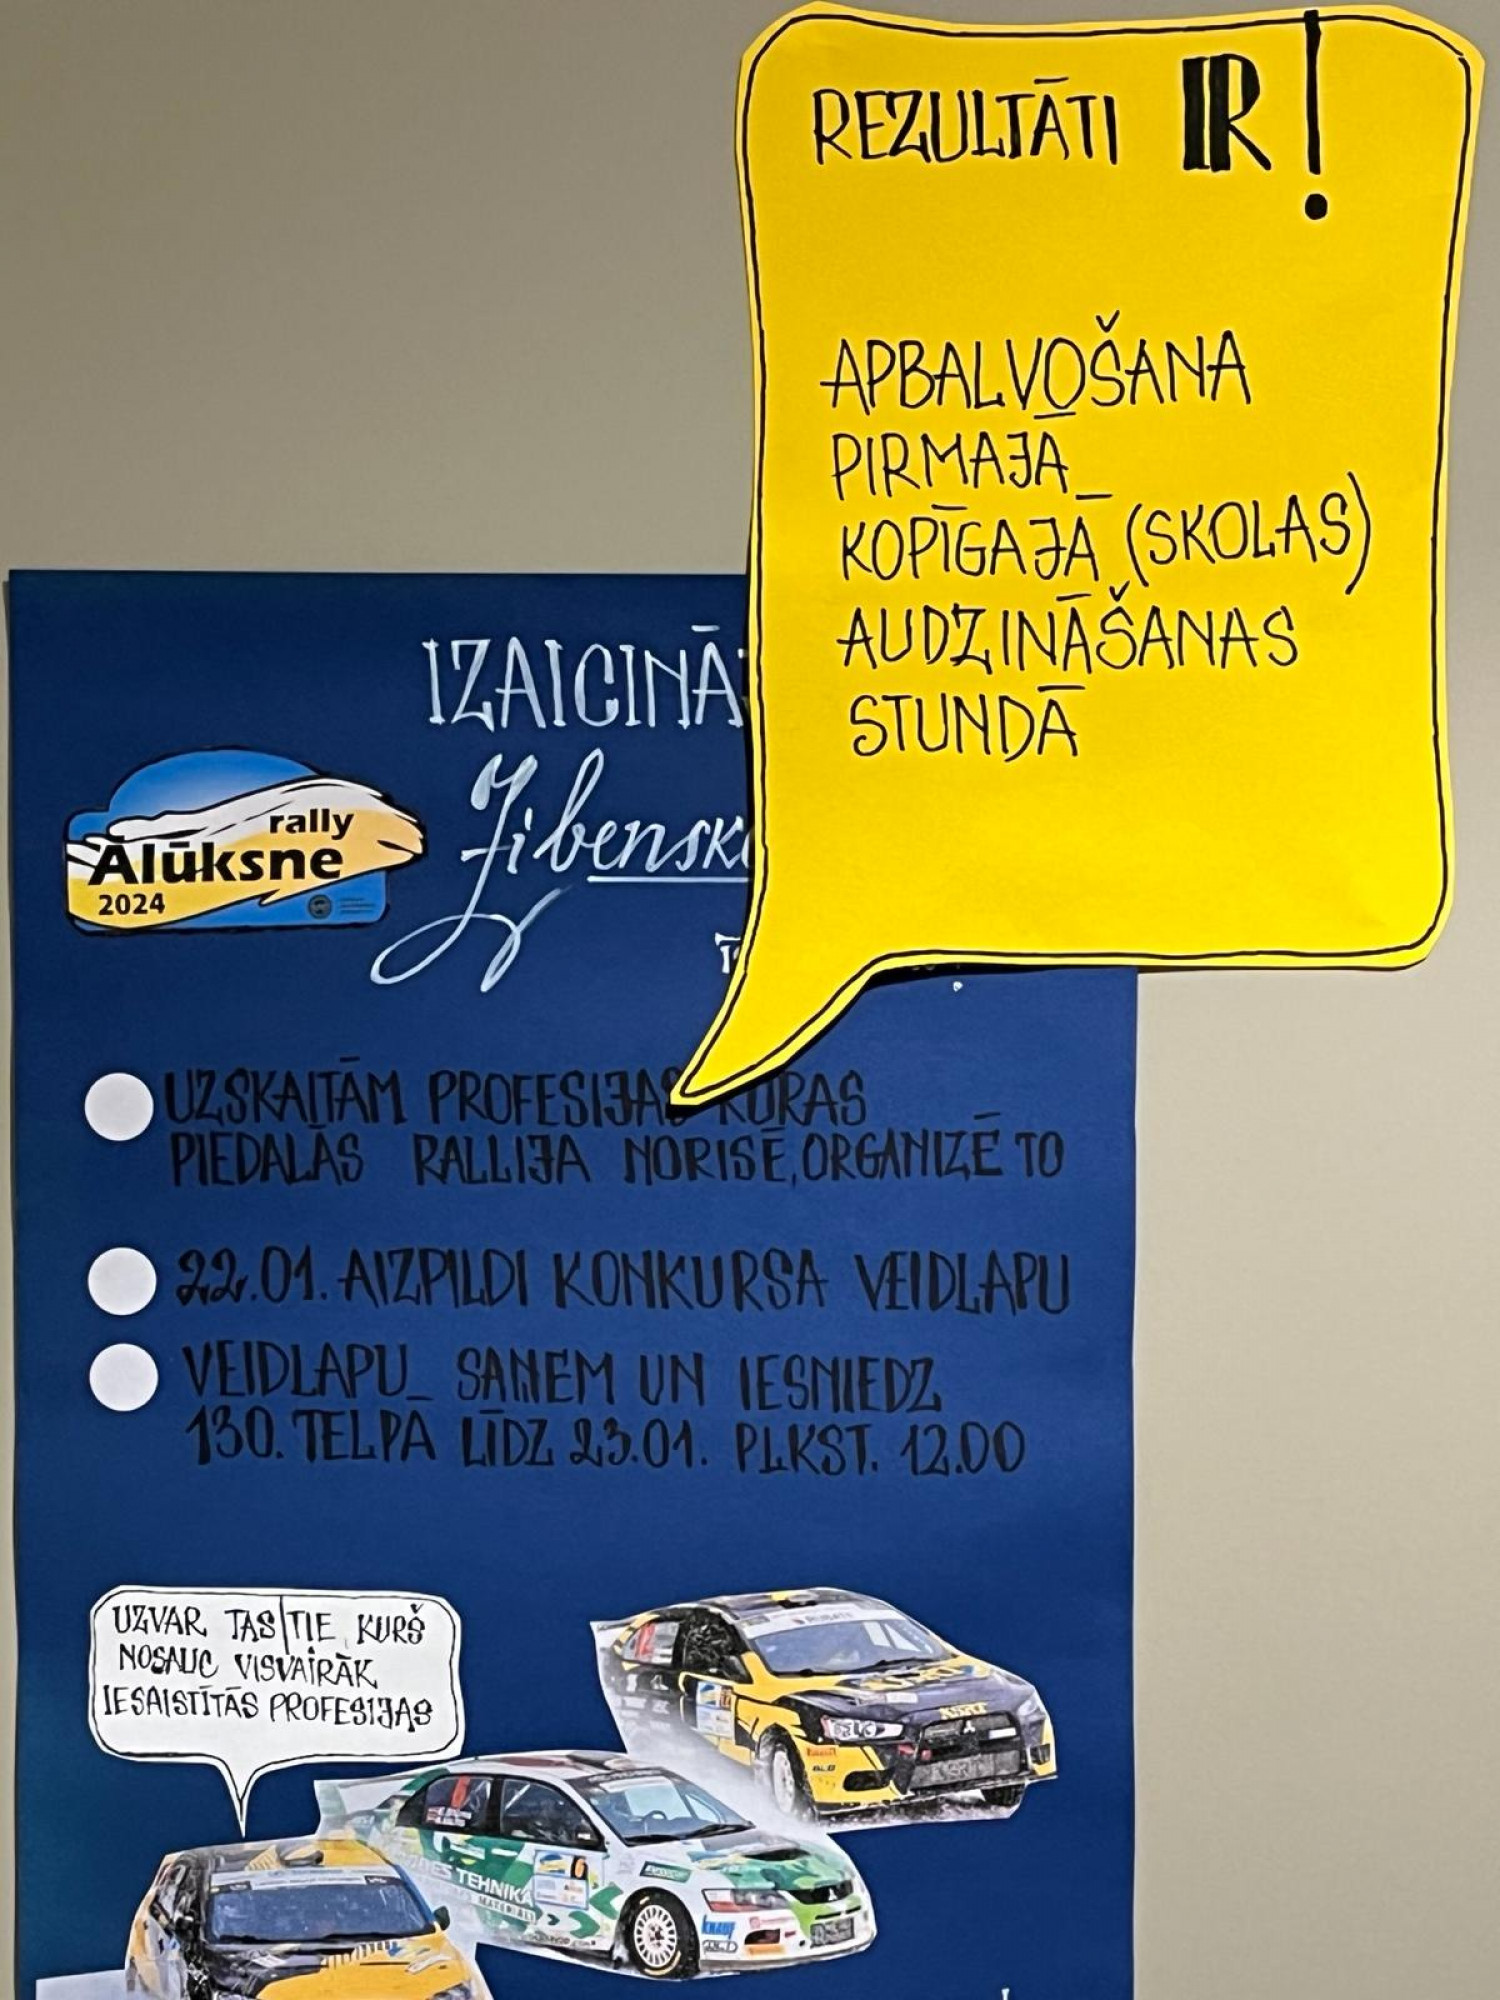 REZULTĀTI IR!
APBALVOŠANA
PIRMAJĀ
KOPĪGAJĀ (SKOLAS)
AUDZINĀŠANAS
STUNDĀ
rally
Alūksne
2024
UZSKAITĀM PROFESIJAS KURAS
PIEDALĀS RALLIJA NORISĒ, ORGANIZĒ TO
22.01. AIZPILDI KONKURSA VEIDLAPU
VEIDLAPU SAŅEM UN IESNIEDZ
130. TELPĀ LĪDZ 23.01. PLKST. 12.00
UZVAR TAS/TIE KURŠ
NOSAUC VISVAIRĀK
IESAISTĪTĀS PROFESIJAS
TEHNIKA
6
6
KNAUF